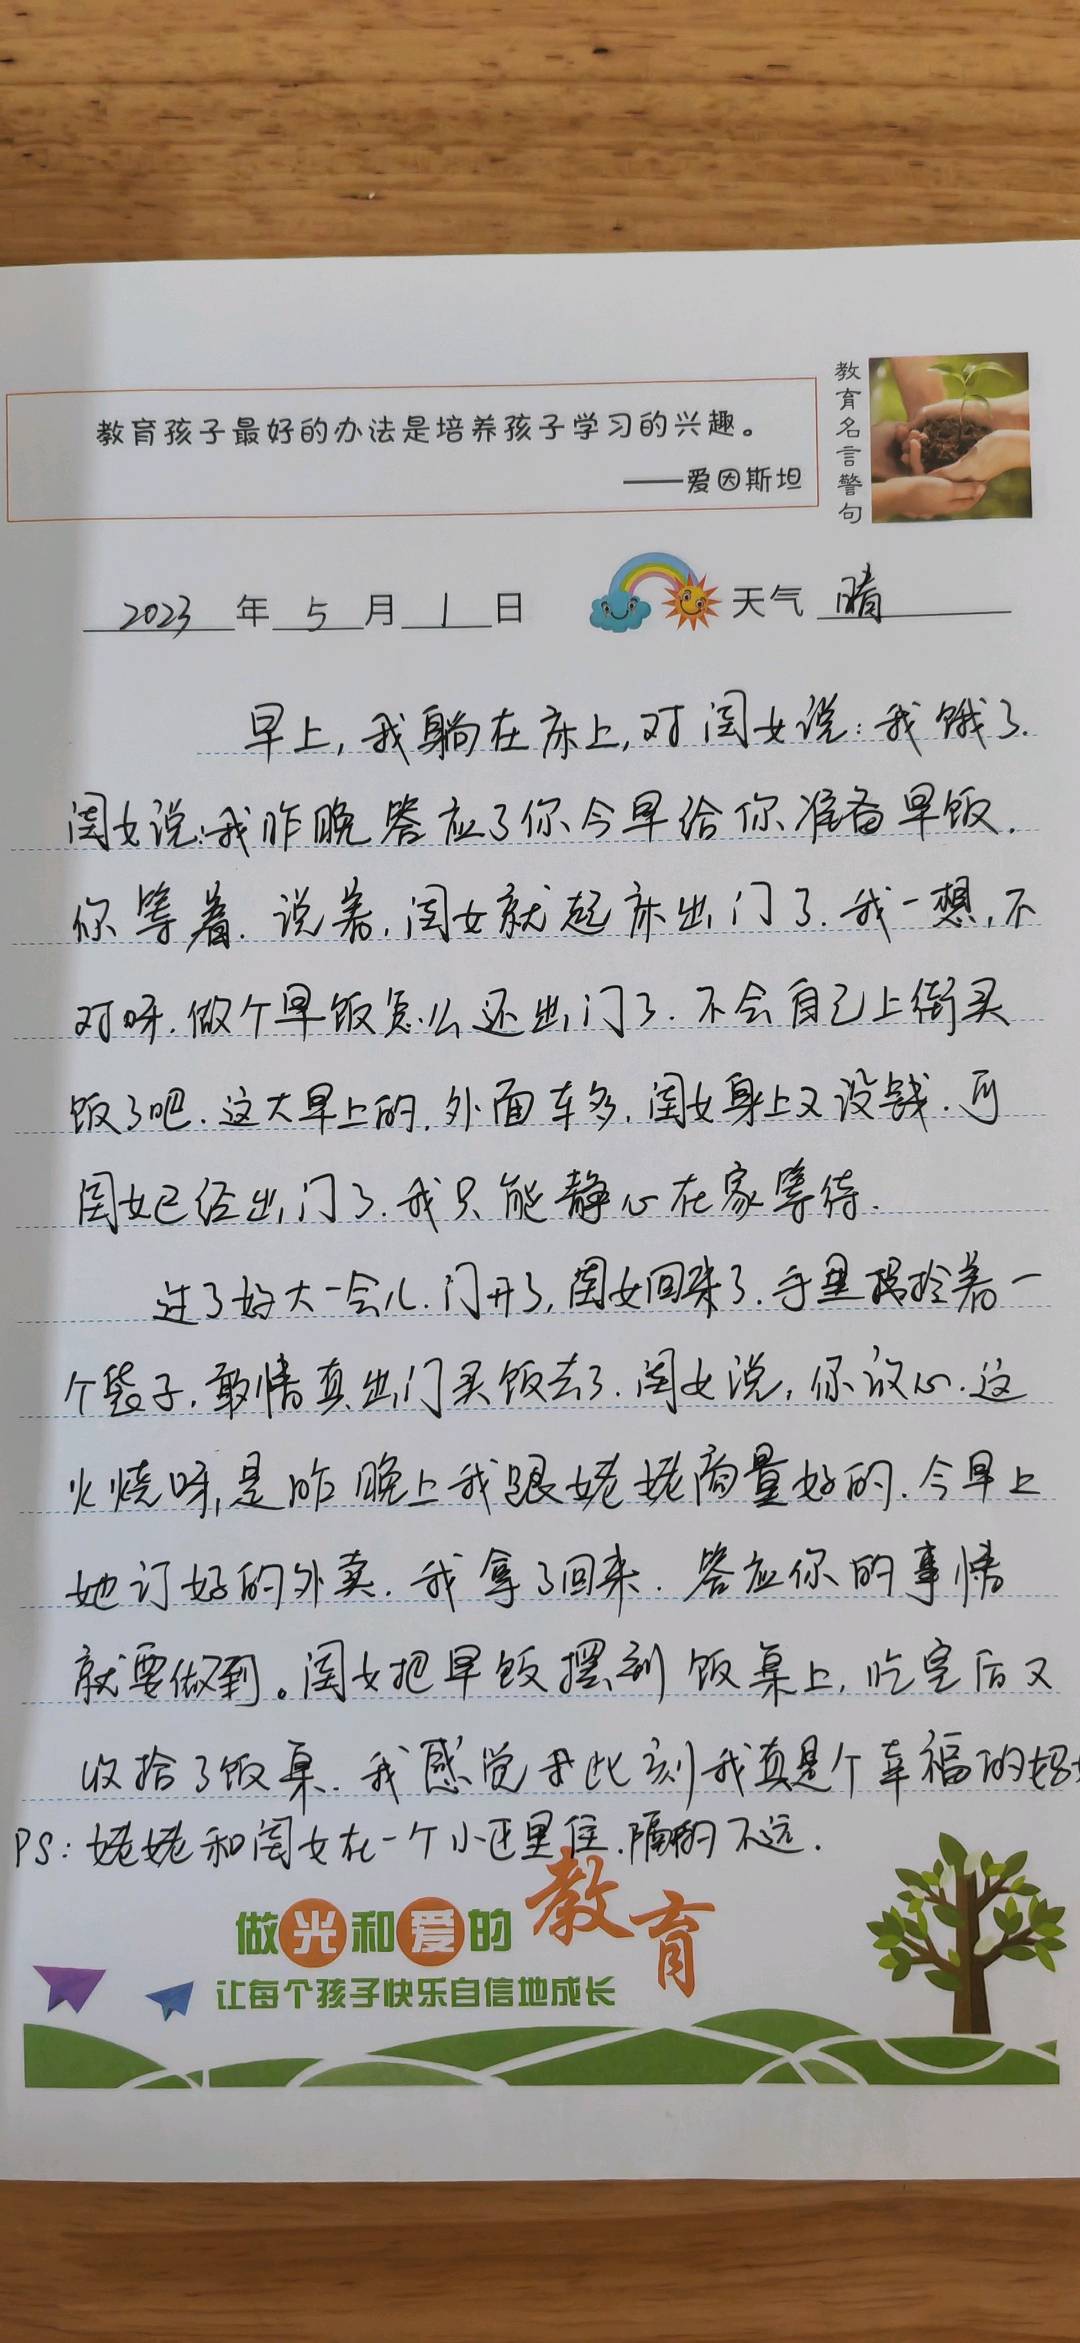 教育孩子最好的办法是培养孩子学习的兴趣。
——爱因斯坦
教育名言警句
2023年5月1日 天气 晴
早上,我躺在床上,对闺女说:我饿了.
闺女说:我昨晚答应了你今早给你准备早饭.
你等着.说着,闺女就起床出门了.我一想,不
对呀.做个早饭怎么还出门了.不会自己上街买
饭了吧.这大早上的,外面车多,闺女身上又没钱.可
闺女已经出门了.我只能静心在家等待.
过了好大一会儿.门开了,闺女回来了.手里拎着一
个袋子,敢情真出门买饭去了.闺女说,你放心.这
火烧呀,是昨晚上我跟姥姥商量好的.今早上
她订好的外卖.我拿了回来.答应你的事情
就要做到。闺女把早饭摆到饭桌上,吃完后又
收拾了饭桌.我感觉此刻我真是个幸福的妈
PS:姥姥和闺女在一个小区里住.隔的不远.
做光和爱的教育
让每个孩子快乐自信地成长